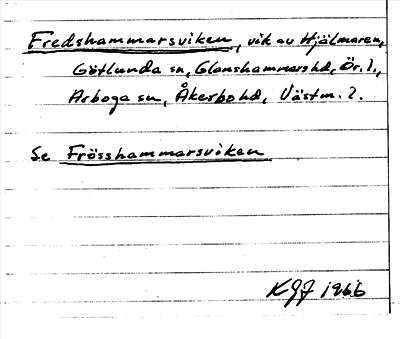 Fredshammarsviken, vik av Hjälmaren,
Götlunda sn, Glanshammars hd, Ör. l.,
Arboga sn, Åkerbo hd, Västm. l.
Se Frösshammarsviken
KGJ 1966